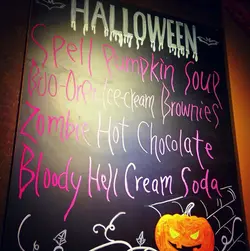 HALLOWEEN
Spell Pumpkin Soup
Boo-Oner Ice-cream Brownies
Zombie Hot Chocolate
Bloody Hell Cream Soda